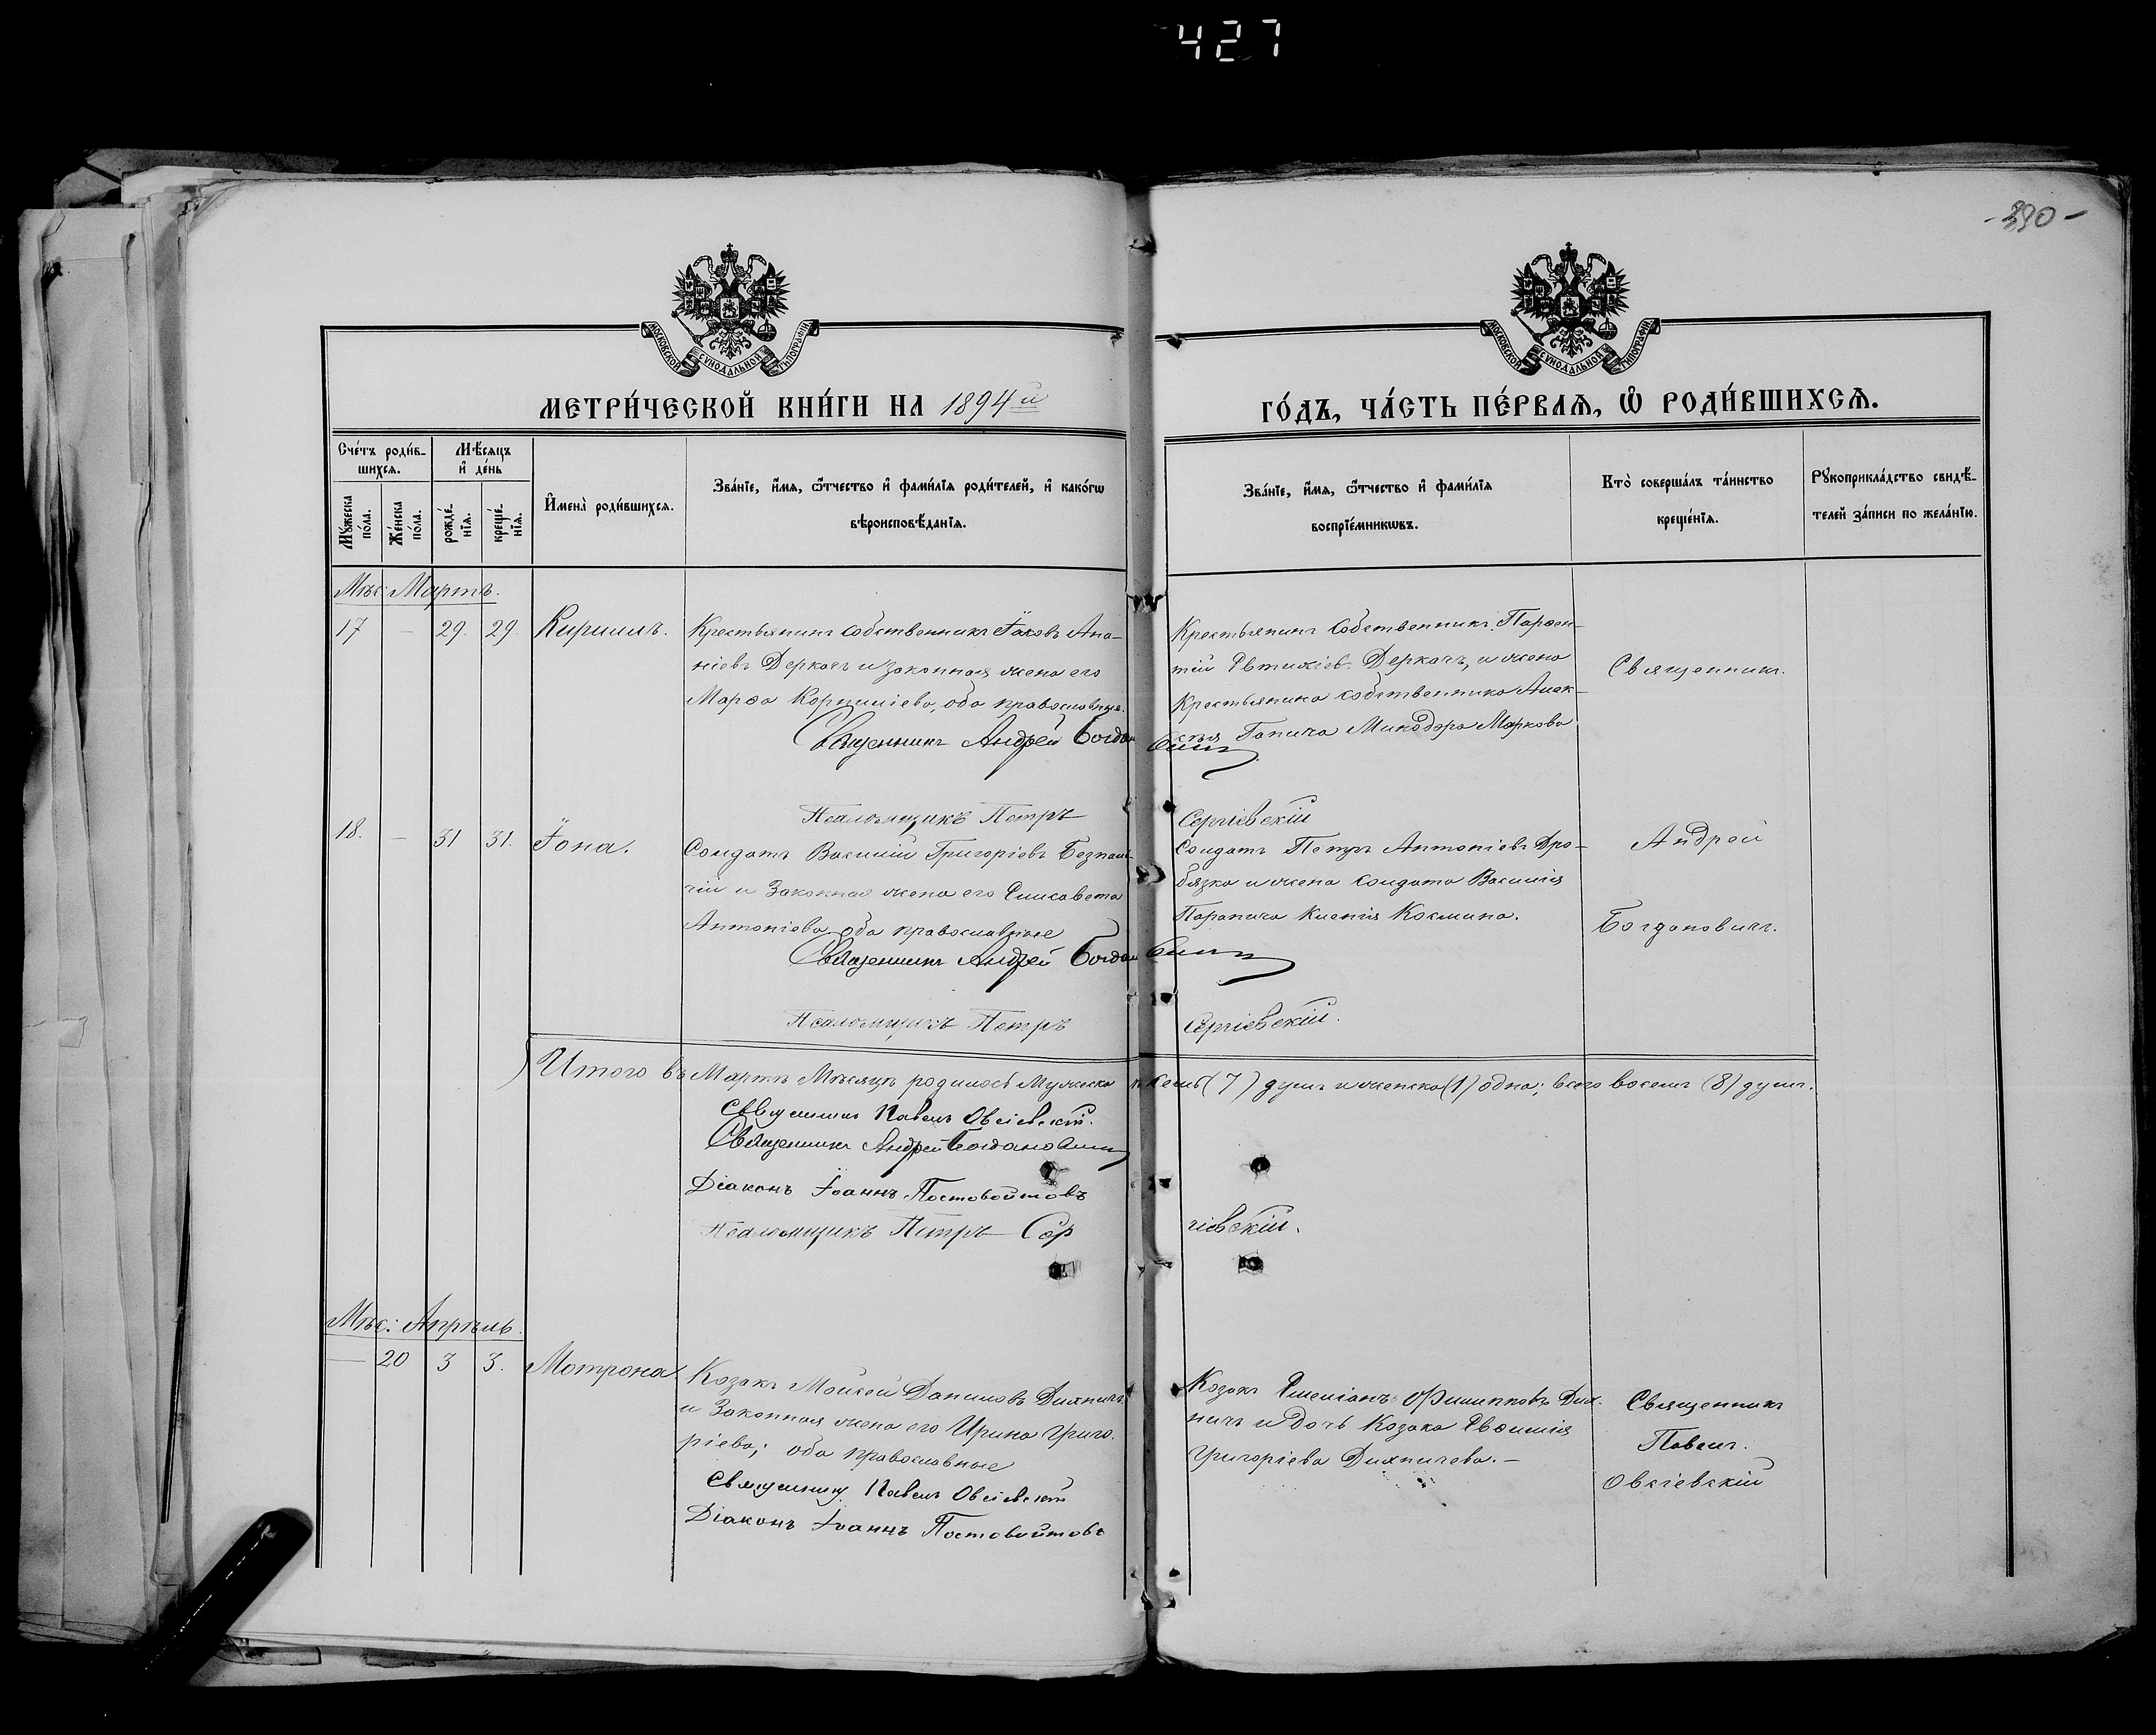 427
-390-
МОСКОВСКОЙ СѴНОДАЛЬНОЙ ТИПОГРАФІИ
МОСКОВСКОЙ СѴНОДАЛЬНОЙ ТИПОГРАФІИ
МЕТРИ́ЧЕСКОЙ КНИ́ГИ НА 1894й
ГО́ДЪ, ЧА́СТЬ ПЕ́РВАѦ, Ѡ РОДИ́ВШИХСѦ.
Сче́тъ роди́в-
шихсѧ.
Мѣ́сѧцъ
и҆ де́нь
Мꙋ́жеска
по́ла.
Же́нска
по́ла.
рожде́-
нїѧ.
креще́-
нїѧ.
И҆мена̀ роди́вшихсѧ.
Зва́нїе, и҆́мѧ, ѻ҆́тчество и҆ фами́лїѧ роди́телей, и҆ како́гѡ
вѣроисповѣ́данїѧ.
Зва́нїе, и҆́мѧ, ѻ҆́тчество и҆ фами́лїѧ
воспрїе́мникѡвъ.
Кто̀ соверша́лъ та́инство
креще́нїѧ.
Рꙋкоприкла́дство свидѣ́-
телей за́писи по жела́нїю.
Мѣс: Мартъ.
17 — 29. 29. Кириллъ.
Крестьянинъ собственникъ Іаковъ Ана-
ніевъ Деркачъ и законная жена его
Марѳа Корниліева, оба православные.
Священникъ Андрей Богдановичъ
Псаломщикъ Петръ Сергіевскій
Крестьянинъ собственникъ Парѳен-
тій Евтихіевъ Деркачъ, и жена
Крестьянина собственника Алек-
сѣя Гапича Минодора Маркова
Священникъ.
18. — 31 31. Іона.
Солдатъ Василій Григоріевъ
и Законная жена его Елисавета
Антоніева оба православные
Священникъ Андрей Богдановичъ
Псаломщикъ Петръ Сергіевскій.
Солдатъ Петръ Антоніевъ Дро-
бязка и жена солдата Василія
Ксенія Косьмина.
Андрей
Богдановичъ.
Итого въ Мартѣ Мѣсяцѣ родилось Мужеска (7) душъ и женска (1) одна; всего восемь (8) душъ.
Священникъ Павелъ Овсіевскій.
Священникъ Андрей Богдановичъ
Діаконъ Іоаннъ Постовойтовъ
Псаломщикъ Петръ Сергіевскій.
Мѣс: Апрѣль.
— 20 3 3. Мотрона
Козакъ Моисей Даниловъ Дихничъ
и Законная жена его Ирина Григо-
ріева; оба православные
Священникъ Павелъ Овсіевскій
Діаконъ Іоаннъ Постовойтовъ
Козакъ Емеліанъ Филипповъ Дих-
ничъ и дочь Козака Евфимія
Григоріева Дихничева. —
Священникъ
Павелъ.
Овсіевскій